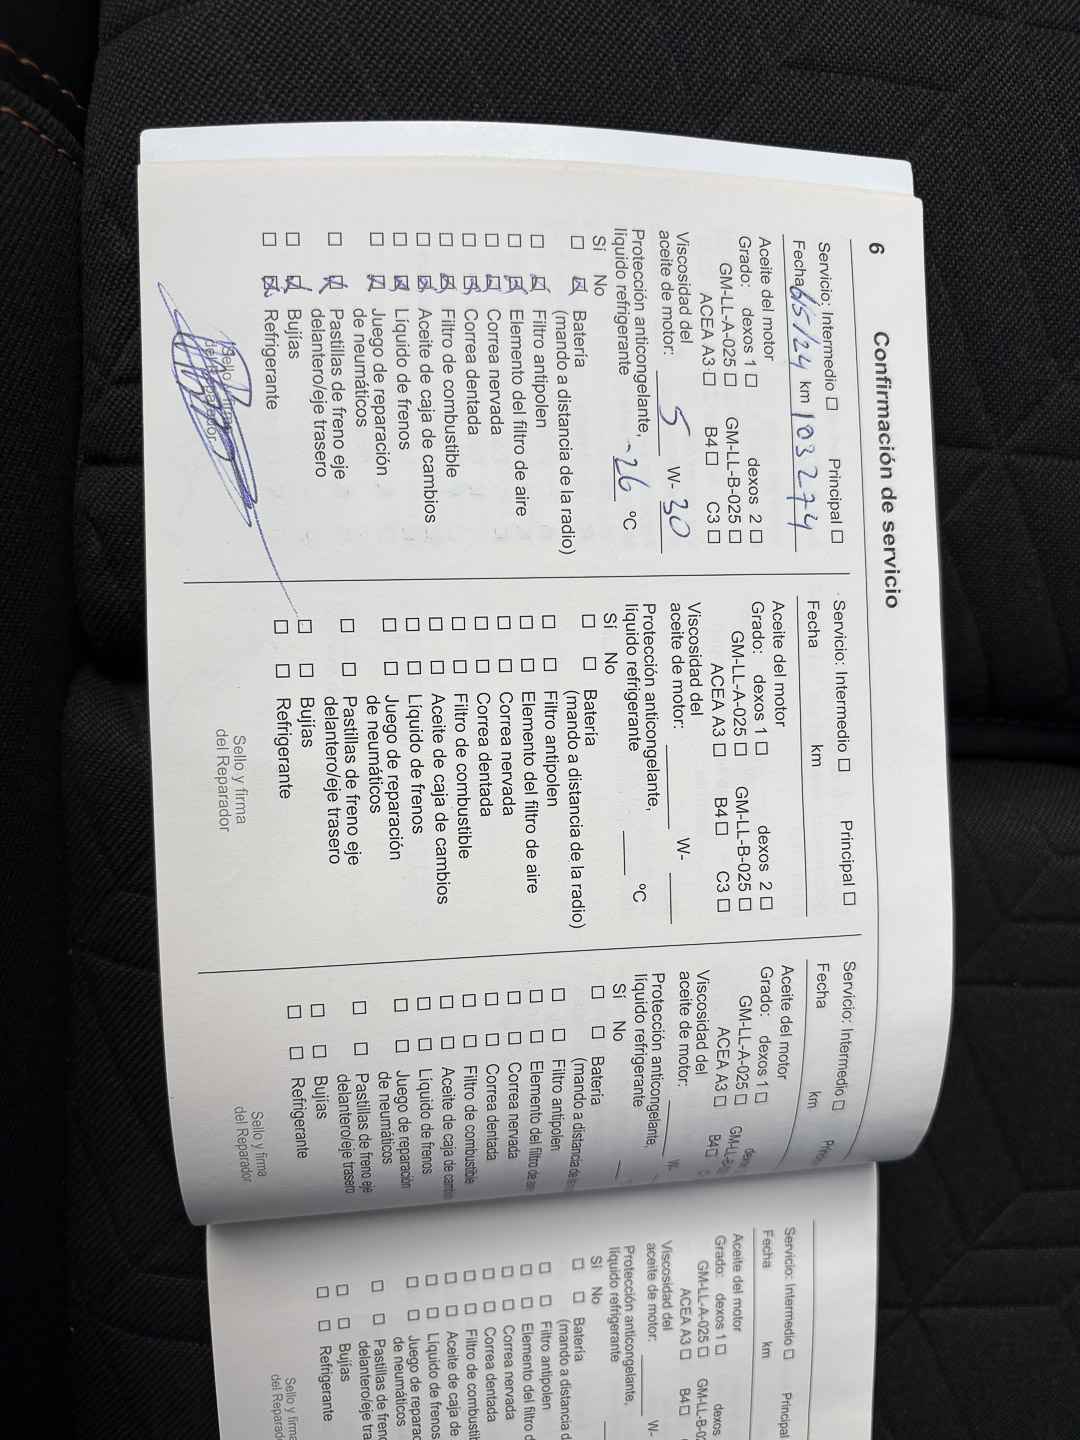 6
Confirmación de servicio
Servicio: Intermedio ☐ Principal ☐
Fecha 6/5/24 km 103274
Aceite del motor
Grado: dexos 1 ☐ dexos 2 ☐
GM-LL-A-025 ☐ GM-LL-B-025 ☐
ACEA A3 ☐ B4 ☐ C3 ☐
Viscosidad del
aceite de motor: 5 W- 30
Protección anticongelante,
líquido refrigerante -26 °C
Sí No
☐ ☒ Batería
(mando a distancia de la radio)
☐ ☒ Filtro antipolen
☐ ☒ Elemento del filtro de aire
☐ ☒ Correa nervada
☐ ☒ Correa dentada
☐ ☒ Filtro de combustible
☐ ☒ Aceite de caja de cambios
☐ ☒ Líquido de frenos
☐ ☒ Juego de reparación
de neumáticos
☐ ☒ Pastillas de freno eje
delantero/eje trasero
☐ ☒ Bujías
☐ ☒ Refrigerante
Sello y firma
del Reparador
Servicio: Intermedio ☐ Principal ☐
Fecha km
Aceite del motor
Grado: dexos 1 ☐ dexos 2 ☐
GM-LL-A-025 ☐ GM-LL-B-025 ☐
ACEA A3 ☐ B4 ☐ C3 ☐
Viscosidad del
aceite de motor: W-
Protección anticongelante,
líquido refrigerante °C
Sí No
☐ ☐ Batería
(mando a distancia de la radio)
☐ ☐ Filtro antipolen
☐ ☐ Elemento del filtro de aire
☐ ☐ Correa nervada
☐ ☐ Correa dentada
☐ ☐ Filtro de combustible
☐ ☐ Aceite de caja de cambios
☐ ☐ Líquido de frenos
☐ ☐ Juego de reparación
de neumáticos
☐ ☐ Pastillas de freno eje
delantero/eje trasero
☐ ☐ Bujías
☐ ☐ Refrigerante
Sello y firma
del Reparador
Servicio: Intermedio ☐
Fecha km
Aceite del motor
Grado: dexos 1 ☐
GM-LL-A-025 ☐
ACEA A3 ☐ B4 ☐
Viscosidad del
aceite de motor: W-
Protección anticongelante,
líquido refrigerante
Sí No
☐ ☐ Batería
(mando a distancia de
☐ ☐ Filtro antipolen
☐ ☐ Elemento del filtro de
☐ ☐ Correa nervada
☐ ☐ Correa dentada
☐ ☐ Filtro de combustible
☐ ☐ Aceite de caja de
☐ ☐ Líquido de frenos
☐ ☐ Juego de reparación
de neumáticos
☐ ☐ Pastillas de freno eje
delantero/eje trasero
☐ ☐ Bujías
☐ ☐ Refrigerante
Sello y firma
del Reparador
Servicio: Intermedio ☐ Principal
Fecha km
Aceite del motor
Grado: dexos 1 ☐ dexos
GM-LL-A-025 ☐ GM-LL-B-02
ACEA A3 ☐ B4 ☐
Viscosidad del
aceite de motor: W-
Protección anticongelante,
líquido refrigerante
Sí No
☐ ☐ Batería
(mando a distancia d
☐ ☐ Filtro antipolen
☐ ☐ Elemento del filtro d
☐ ☐ Correa nervada
☐ ☐ Correa dentada
☐ ☐ Filtro de combustib
☐ ☐ Aceite de caja de
☐ ☐ Líquido de frenos
☐ ☐ Juego de reparac
de neumáticos
☐ ☐ Pastillas de freno
delantero/eje tra
☐ ☐ Bujías
☐ ☐ Refrigerante
Sello y firma
del Reparad